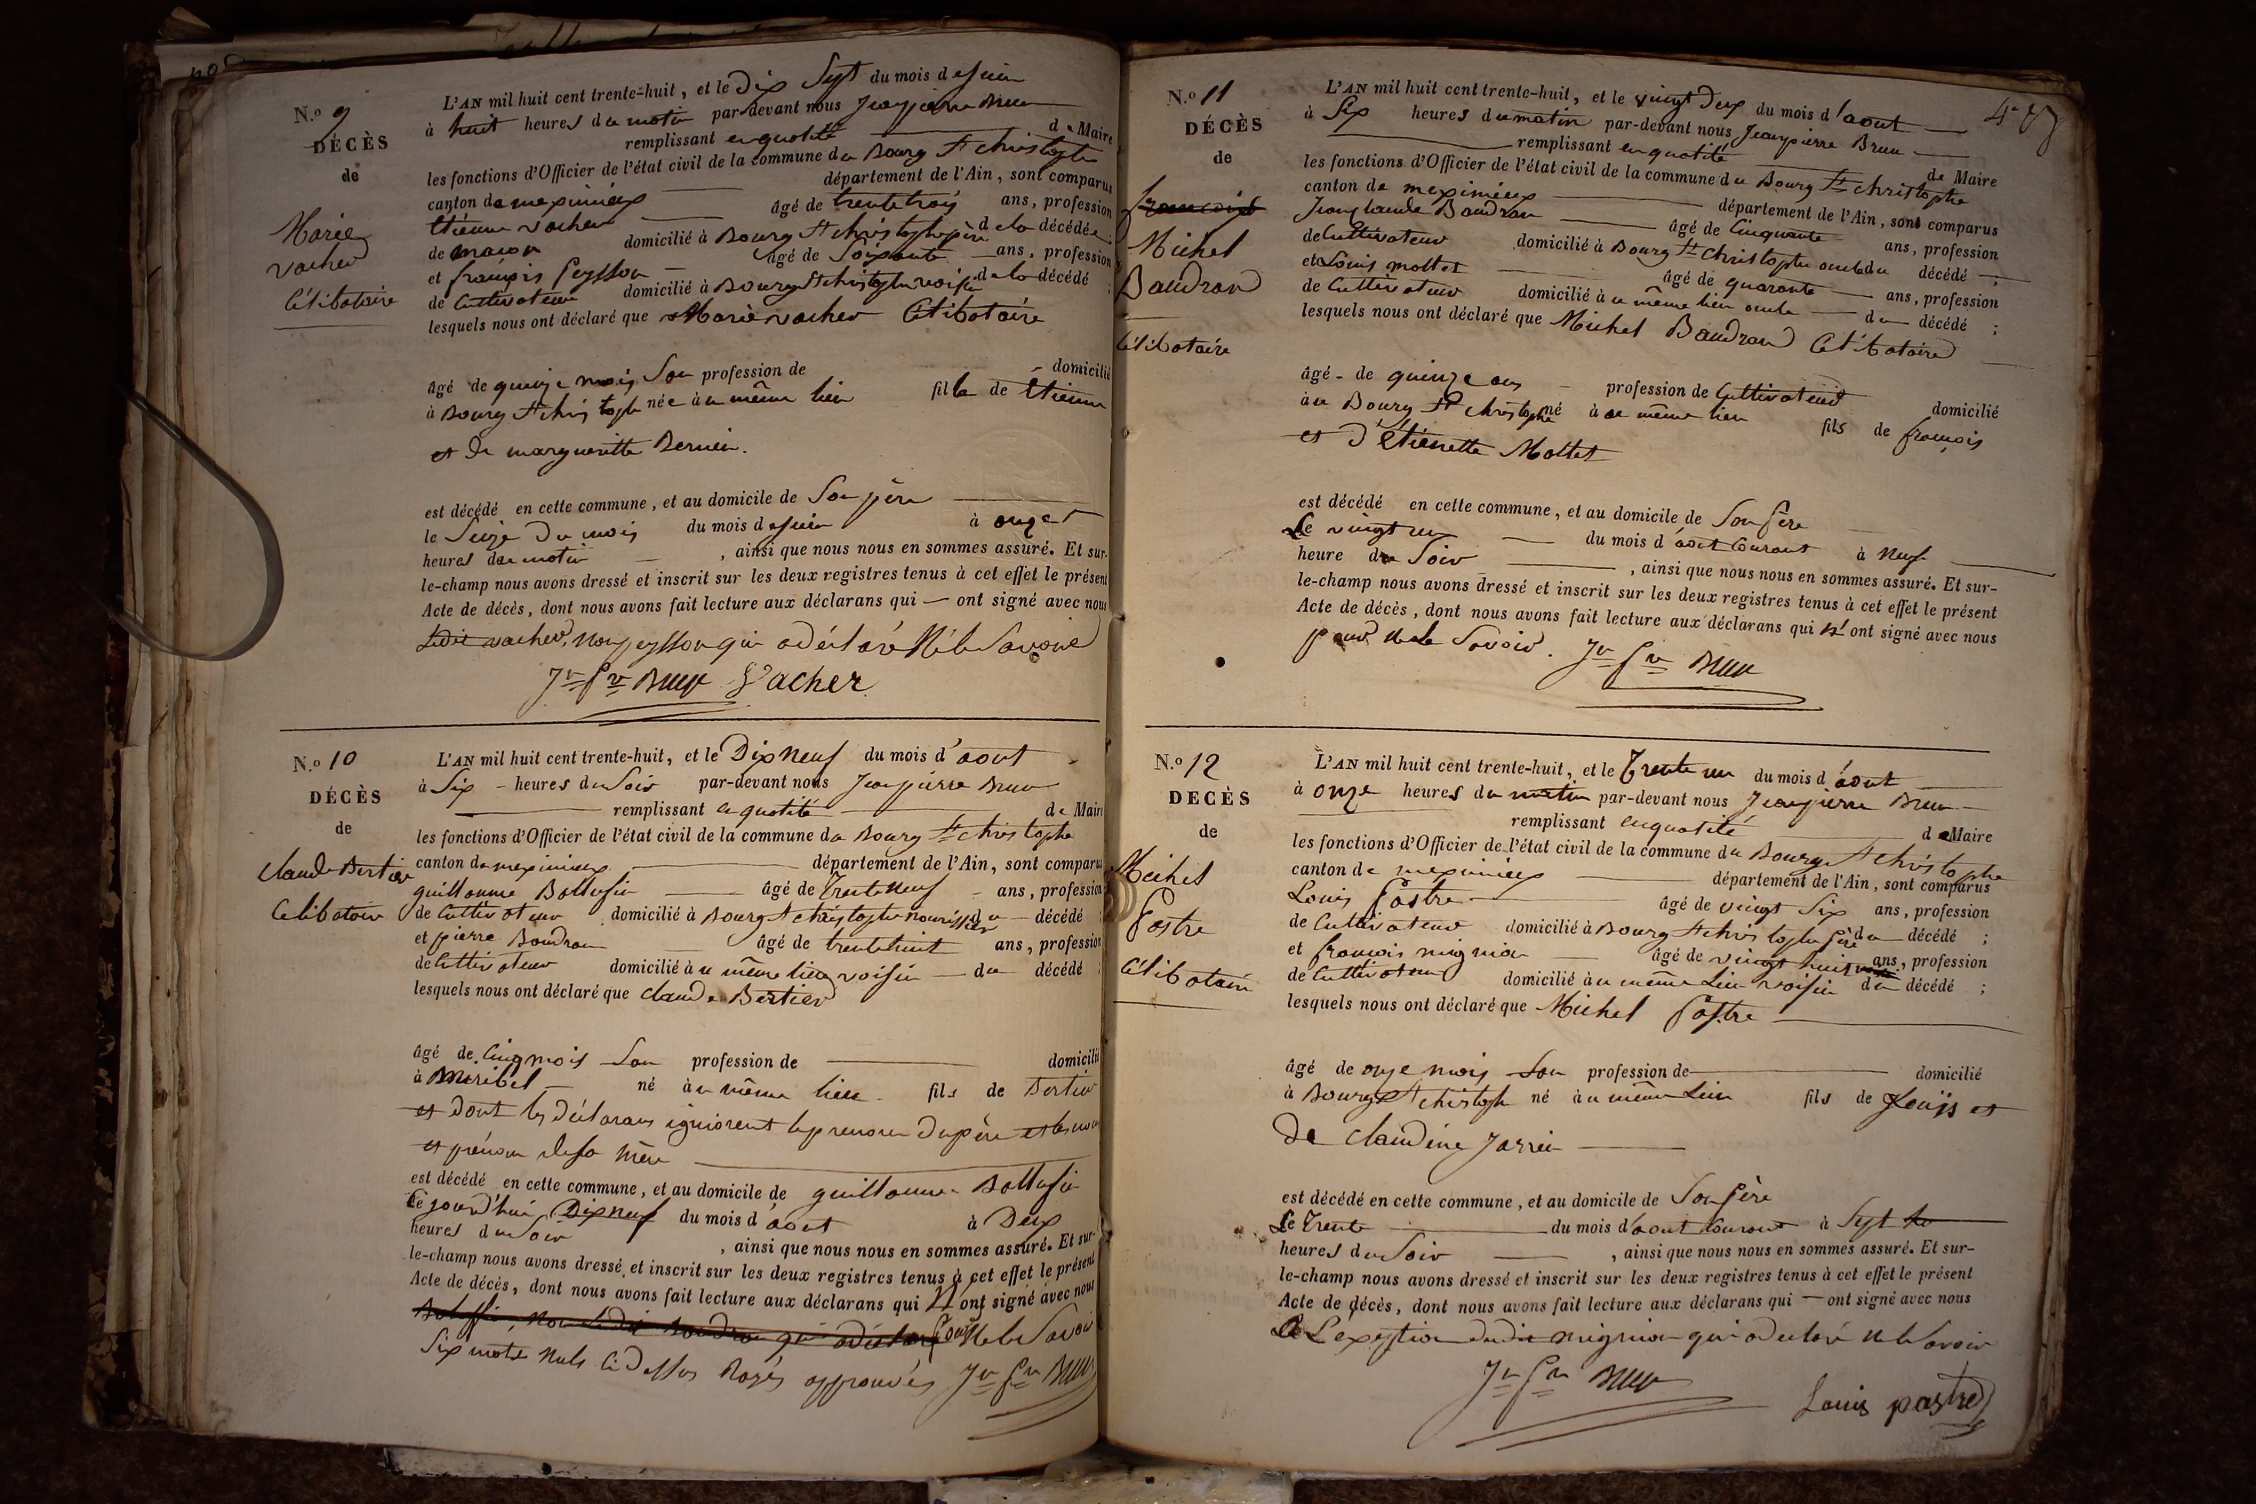 N.º 9
DÉCÈS
de
Marie
vacher
Célibataire
L'AN mil huit cent trente-huit, et le Dix Sept du mois de juin
à huit heures du matin par-devant nous Jean pierre Brun
remplissant en qualité de Maire
les fonctions d'Officier de l'état civil de la commune de Bourg St christophe
canton de meximieux département de l'Ain, sont comparus
étienne vacher âgé de trente trois ans, profession
de maçon domicilié à Bourg St christophe père de la décédée ;
et françois peysson âgé de Soixante ans, profession
de Cultivateur domicilié à Bourg St christophe voisin de la décédé ;
lesquels nous ont déclaré que Marie vacher Célibataire
âgé de quinze mois San profession de domicilié
à Bourg St christophe née à u même lieu fille de étienne
et de marguerite Bernin.
est décédé en cette commune, et au domicile de Son père
le Seize Du mois du mois de juin à onze
heures du matin , ainsi que nous nous en sommes assuré. Et sur-
le-champ nous avons dressé et inscrit sur les deux registres tenus à cet effet le présent
Acte de décès, dont nous avons fait lecture aux déclarans qui — ont signé avec nous
Ledit vacher, non peysson qui a déclaré Ne le Savoir
Jn Pre Brun Vacher
N.º 10
DÉCÈS
de
claude Bertier
Célibataire
L'AN mil huit cent trente-huit, et le Dix Neuf du mois d'aout
à Six heures du Soir par-devant nous Jean pierre Brun
remplissant en qualité de Maire
les fonctions d'Officier de l'état civil de la commune de Bourg St christophe
canton de meximieux département de l'Ain, sont comparus
guillaume âgé de Trente Neuf ans, profession
de Cultivateur domicilié à Bourg St christophe nourissier du décédé ;
et pierre Baudran âgé de trente huit ans, profession
de Cultivateur domicilié à u même lieu voisin du décédé ;
lesquels nous ont déclaré que claude Bertier
âgé de Cinq mois San profession de domicilié
à Miribel né à u même lieu fils de Bertier
et dont les déclarans ignorent le prenom du père et les nom
et prénom de sa Mère
est décédé en cette commune, et au domicile de guillaume
Ce jourd'hui Dix neuf du mois d'aout à Deux
heures du Soir , ainsi que nous nous en sommes assuré. Et sur-
le-champ nous avons dressé et inscrit sur les deux registres tenus à cet effet le présent
Acte de décès, dont nous avons fait lecture aux déclarans qui N'ont signé avec nous
pour Ne le Savoir
Six mots Nuls Ci Dessus Rayés approuvés Jn Pre Brun
4
N.º 11
DÉCÈS
de
françois
Michel
Baudran
Célibataire
L'AN mil huit cent trente-huit, et le vingt deux du mois d'aout
à Six heures du matin par-devant nous Jean pierre Brun
remplissant en qualité de Maire
les fonctions d'Officier de l'état civil de la commune de Bourg St christophe
canton de meximieux département de l'Ain, sont comparus
Jean claude Baudran âgé de Cinquante ans, profession
de Cultivateur domicilié à Bourg St christophe oncle du décédé ;
et Louis mottet âgé de quarante ans, profession
de Cultivateur domicilié à u même lieu oncle du décédé ;
lesquels nous ont déclaré que Michel Baudran Célibataire
âgé de quinze ans profession de Cultivateur domicilié
à u Bourg St christophe né à u même lieu fils de françois
et d'étienette Mottet
est décédé en cette commune, et au domicile de Son père
Le vingt un du mois d'aout Courant à Neuf
heure du Soir , ainsi que nous nous en sommes assuré. Et sur-
le-champ nous avons dressé et inscrit sur les deux registres tenus à cet effet le présent
Acte de décès, dont nous avons fait lecture aux déclarans qui N'ont signé avec nous
pour Ne le Savoir. Jn Pre Brun
N.º 12
DÉCÈS
de
Michel
Pastre
Célibataire
L'AN mil huit cent trente-huit, et le Trente un du mois d'aout
à onze heures du matin par-devant nous Jean pierre Brun
remplissant en qualité de Maire
les fonctions d'Officier de l'état civil de la commune du Bourg St christophe
canton de meximieux département de l'Ain, sont comparus
Louis Pastre âgé de vingt Six ans, profession
de Cultivateur domicilié à Bourg St christophe père du décédé ;
et françois mignion âgé de vingt huit ans, profession
de Cultivateur domicilié à u même Lieu voisin du décédé ;
lesquels nous ont déclaré que Michel Pastre
âgé de onze mois San profession de domicilié
à Bourg St christophe né à u même Lieu fils de Louis et
De claudine Jarrin
est décédé en cette commune, et au domicile de Son Père
Le Trente du mois d'aout Courant à Sept
heures du Soir , ainsi que nous nous en sommes assuré. Et sur-
le-champ nous avons dressé et inscrit sur les deux registres tenus à cet effet le présent
Acte de décès, dont nous avons fait lecture aux déclarans qui — ont signé avec nous
à L'exeption dudit mignion qui a declaré Ne le Savoir
Jn Pre Brun Louis pastre